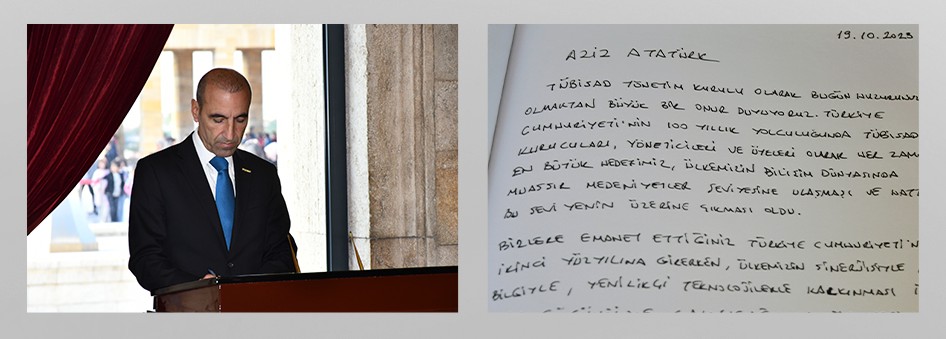 19.10.2023
AZİZ ATATÜRK
TÜBİSAD YÖNETİM KURULU OLARAK BUGÜN HUZURUNUZ
OLMAKTAN BÜYÜK BİR ONUR DUYUYORUZ. TÜRKİYE
CUMHURİYETİ'NİN 100 YILLIK YOLCULUĞUNDA TÜBİSAD
KURUCULARI, YÖNETİCİLERİ VE ÜYELERİ OLARAK HER ZAM
EN BÜYÜK HEDEFİMİZ, ÜLKEMİZİN BİLİŞİM DÜNYASINDA
MUASSIR MEDENİYETLER SEVİYESİNE ULAŞMASI VE HATT
BU SEVİYENİN ÜZERİNE ÇIKMASI OLDU.
BİZLERE EMANET ETTİĞİNİZ TÜRKİYE CUMHURİYETİ'N
İKİNCİ YÜZYILINA GİRERKEN, ÜLKEMİZİN SİNERJİSİYLE
BİLGİYLE, YENİLİKÇİ TEKNOLOJİLERLE KALKINMASI İ